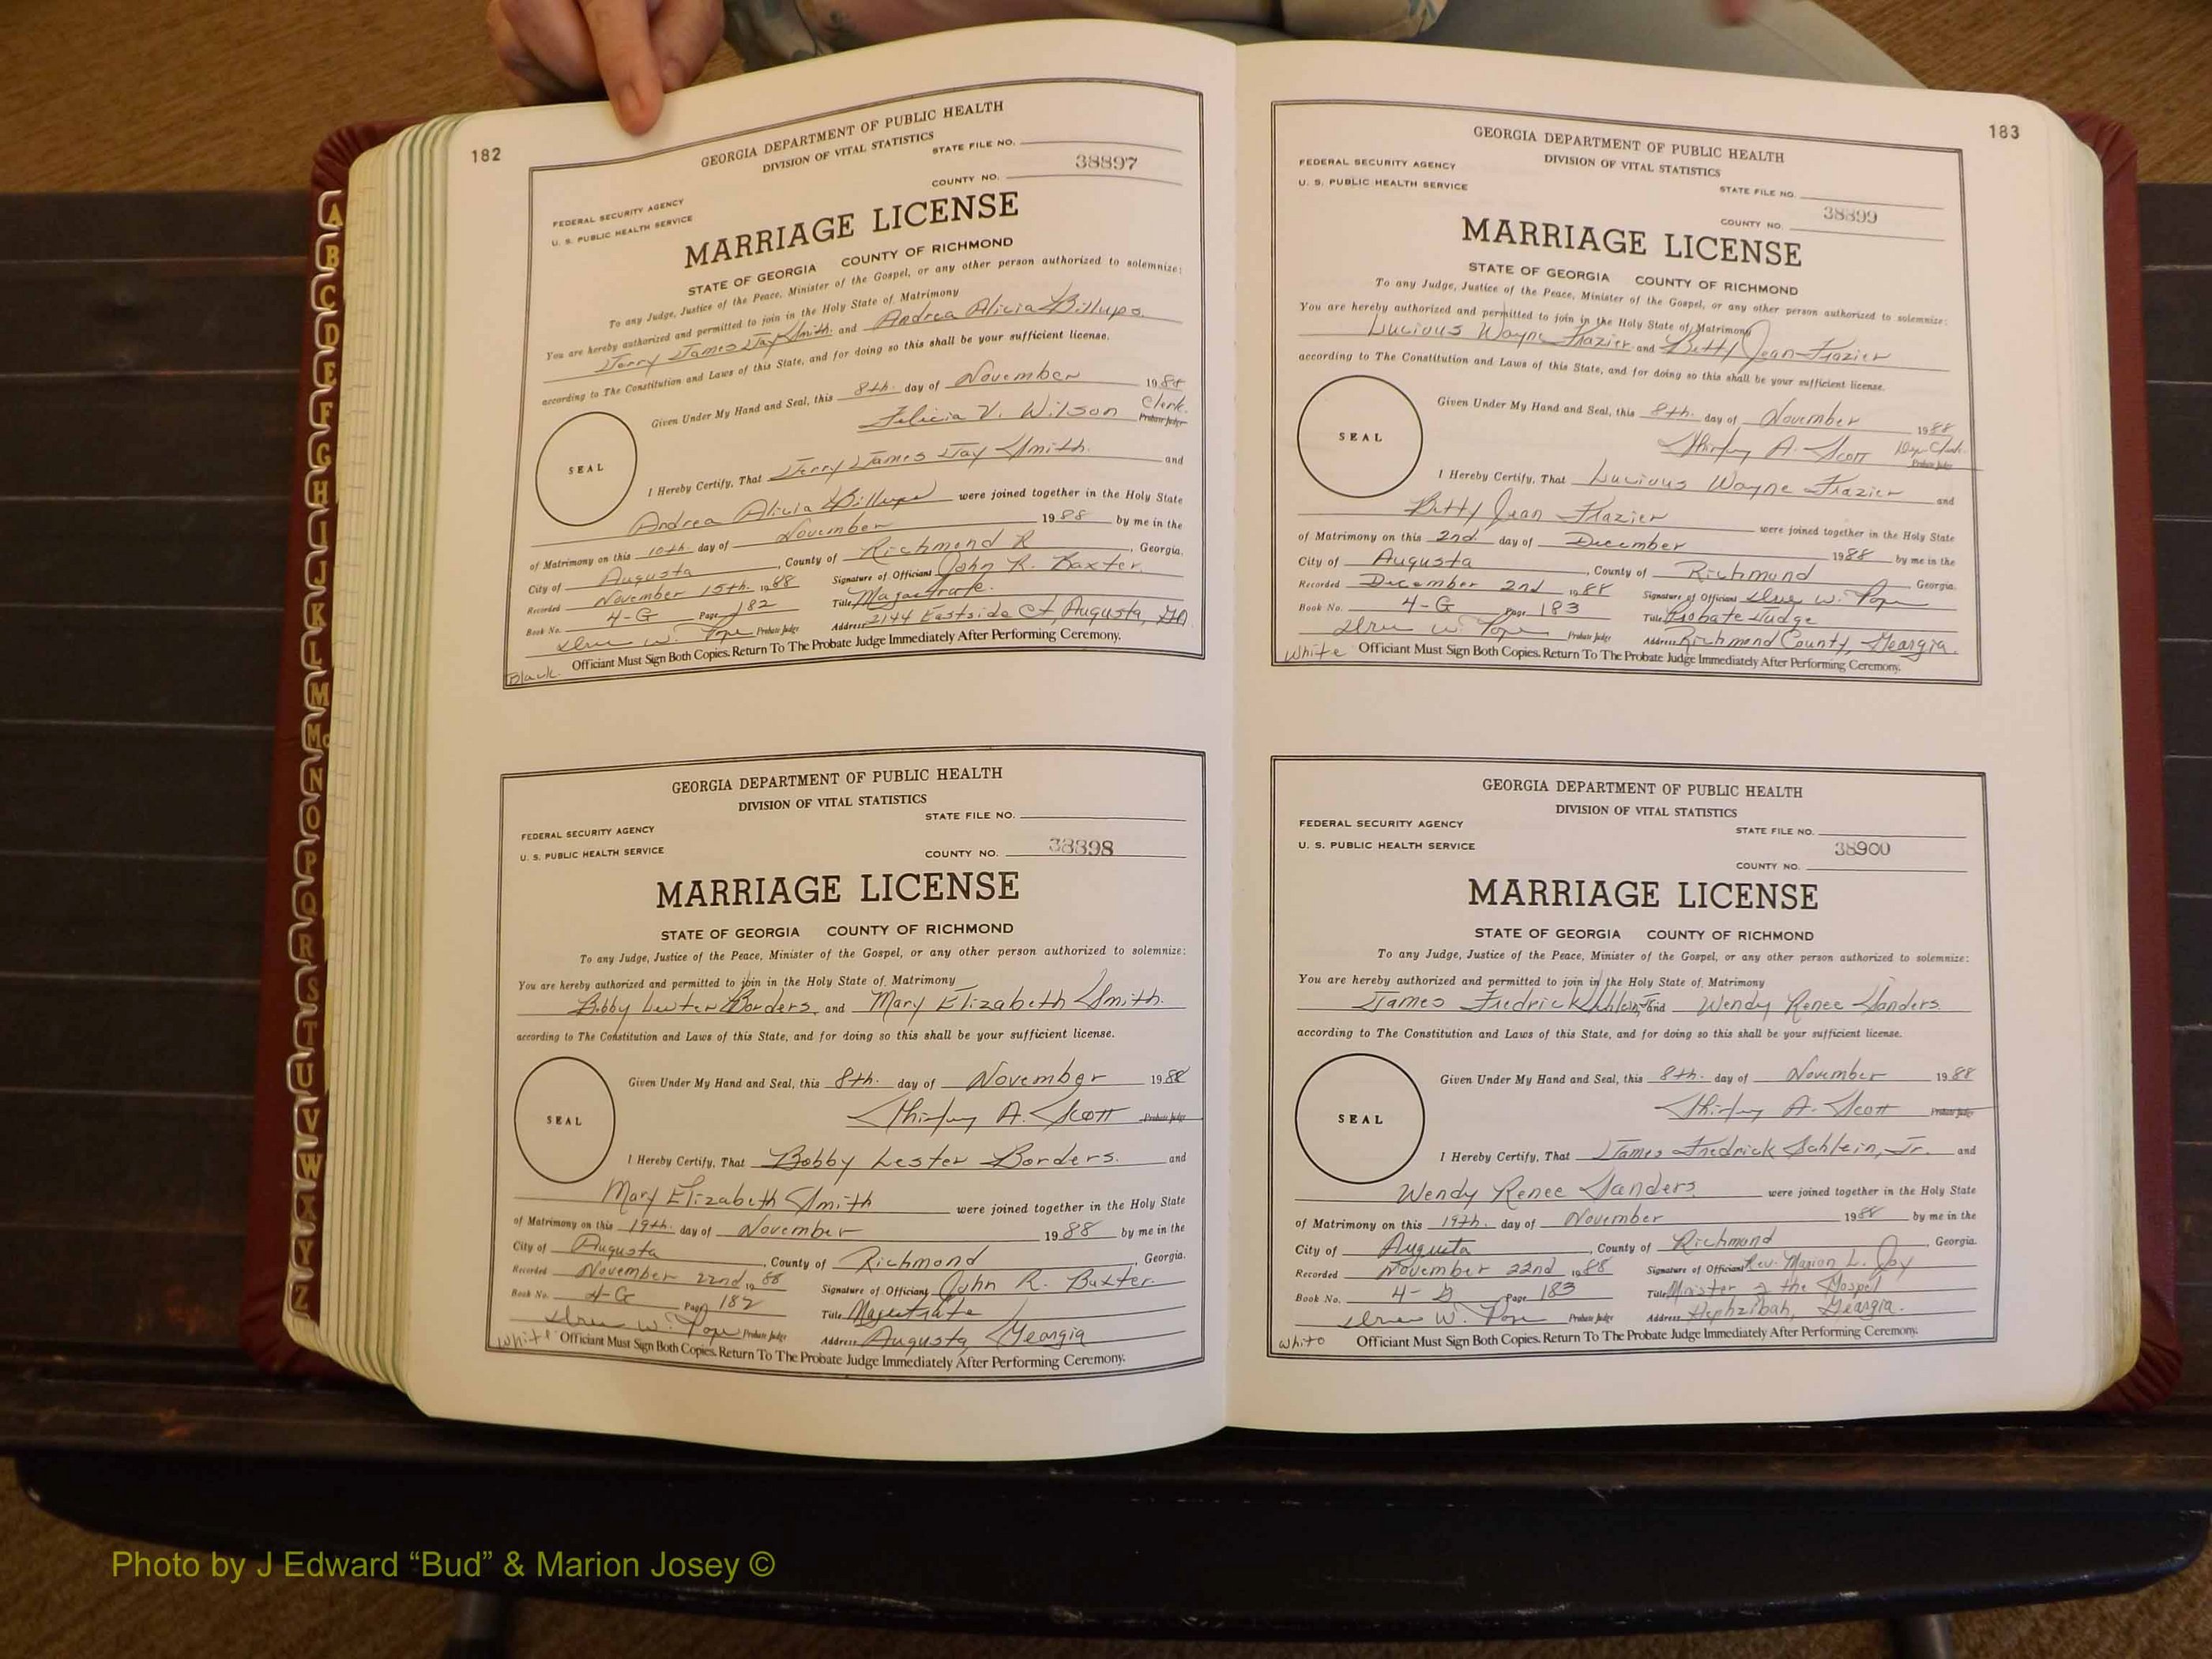 182
GEORGIA DEPARTMENT OF PUBLIC HEALTH
DIVISION OF VITAL STATISTICS
STATE FILE NO.
38897
COUNTY NO.
FEDERAL SECURITY AGENCY
U. S. PUBLIC HEALTH SERVICE
MARRIAGE LICENSE
STATE OF GEORGIA COUNTY OF RICHMOND
To any Judge, Justice of the Peace, Minister of the Gospel, or any other person authorized to solemnize:
You are hereby authorized and permitted to join in the Holy State of Matrimony
Jerry James Jay Smith and Andrea Alicia Billups
according to The Constitution and Laws of this State, and for doing so this shall be your sufficient license.
Given Under My Hand and Seal, this 8th. day of November 1988
Felicia V. Wilson Clerk. Probate Judge
SEAL
I Hereby Certify, That Jerry James Jay Smith. and
Andrea Alicia Billups were joined together in the Holy State
of Matrimony on this 10th. day of November 1988 by me in the
City of Augusta, County of Richmond, Georgia.
Recorded November 15th. 1988 Signature of Officiant John R. Baxter.
Book No. 4-G Page 182 Title Magistrate.
Probate Judge Address 2144 Eastside Ct, Augusta, GA
Officiant Must Sign Both Copies. Return To The Probate Judge Immediately After Performing Ceremony.
Black.
GEORGIA DEPARTMENT OF PUBLIC HEALTH
DIVISION OF VITAL STATISTICS
STATE FILE NO.
FEDERAL SECURITY AGENCY
U. S. PUBLIC HEALTH SERVICE
COUNTY NO. 38898
MARRIAGE LICENSE
STATE OF GEORGIA COUNTY OF RICHMOND
To any Judge, Justice of the Peace, Minister of the Gospel, or any other person authorized to solemnize:
You are hereby authorized and permitted to join in the Holy State of Matrimony
Bobby Lester Borders, and Mary Elizabeth Smith.
according to The Constitution and Laws of this State, and for doing so this shall be your sufficient license.
Given Under My Hand and Seal, this 8th. day of November 1988
Shirley A. Scott Probate Judge
SEAL
I Hereby Certify, That Bobby Lester Borders. and
Mary Elizabeth Smith were joined together in the Holy State
of Matrimony on this 19th. day of November 1988 by me in the
City of Augusta, County of Richmond, Georgia.
Recorded November 22nd, 1988 Signature of Officiant John R. Baxter.
Book No. 4-G Page 182 Title Magistrate
Probate Judge Address Augusta, Georgia
White Officiant Must Sign Both Copies. Return To The Probate Judge Immediately After Performing Ceremony.
183
GEORGIA DEPARTMENT OF PUBLIC HEALTH
DIVISION OF VITAL STATISTICS
FEDERAL SECURITY AGENCY
U. S. PUBLIC HEALTH SERVICE
STATE FILE NO.
38899
COUNTY NO.
MARRIAGE LICENSE
STATE OF GEORGIA COUNTY OF RICHMOND
To any Judge, Justice of the Peace, Minister of the Gospel, or any other person authorized to solemnize:
You are hereby authorized and permitted to join in the Holy State of Matrimony
Lucious Wayne Frazier and Betty Jean Frazier
according to The Constitution and Laws of this State, and for doing so this shall be your sufficient license.
Given Under My Hand and Seal, this 8th. day of November 1988
Shirley A. Scott Dep. Clerk. Probate Judge
SEAL
I Hereby Certify, That Lucious Wayne Frazier and
Betty Jean Frazier were joined together in the Holy State
of Matrimony on this 2nd day of December 1988 by me in the
City of Augusta, County of Richmond Georgia.
Recorded December 2nd 1988 Signature of Officiant
Book No. 4-G Page 183 Title Probate Judge
Probate Judge Address Richmond County, Georgia.
White Officiant Must Sign Both Copies. Return To The Probate Judge Immediately After Performing Ceremony.
GEORGIA DEPARTMENT OF PUBLIC HEALTH
DIVISION OF VITAL STATISTICS
FEDERAL SECURITY AGENCY
STATE FILE NO.
U. S. PUBLIC HEALTH SERVICE
38900
COUNTY NO.
MARRIAGE LICENSE
STATE OF GEORGIA COUNTY OF RICHMOND
To any Judge, Justice of the Peace, Minister of the Gospel, or any other person authorized to solemnize:
You are hereby authorized and permitted to join in the Holy State of Matrimony
James Fredrick and Wendy Renee Sanders.
according to The Constitution and Laws of this State, and for doing so this shall be your sufficient license.
Given Under My Hand and Seal, this 8th. day of November 1988
Shirley A. Scott Probate Judge
SEAL
I Hereby Certify, That James Fredrick Sahlein, Jr. and
Wendy Renee Sanders were joined together in the Holy State
of Matrimony on this 19th. day of November 1988 by me in the
City of Augusta, County of Richmond, Georgia.
Recorded November 22nd 1988 Signature of Officiant Rev. Marion L. Joy
Book No. 4-G Page 183 Title Minister of the Gospel
Probate Judge Address Hephzibah, Georgia.
White Officiant Must Sign Both Copies. Return To The Probate Judge Immediately After Performing Ceremony.
A
B
C
D
E
F
G
H
I
J
K
L
M
Mc
N
O
P
Q
R
S
T
U
V
W
X
Y
Z
Photo by J Edward “Bud” & Marion Josey ©